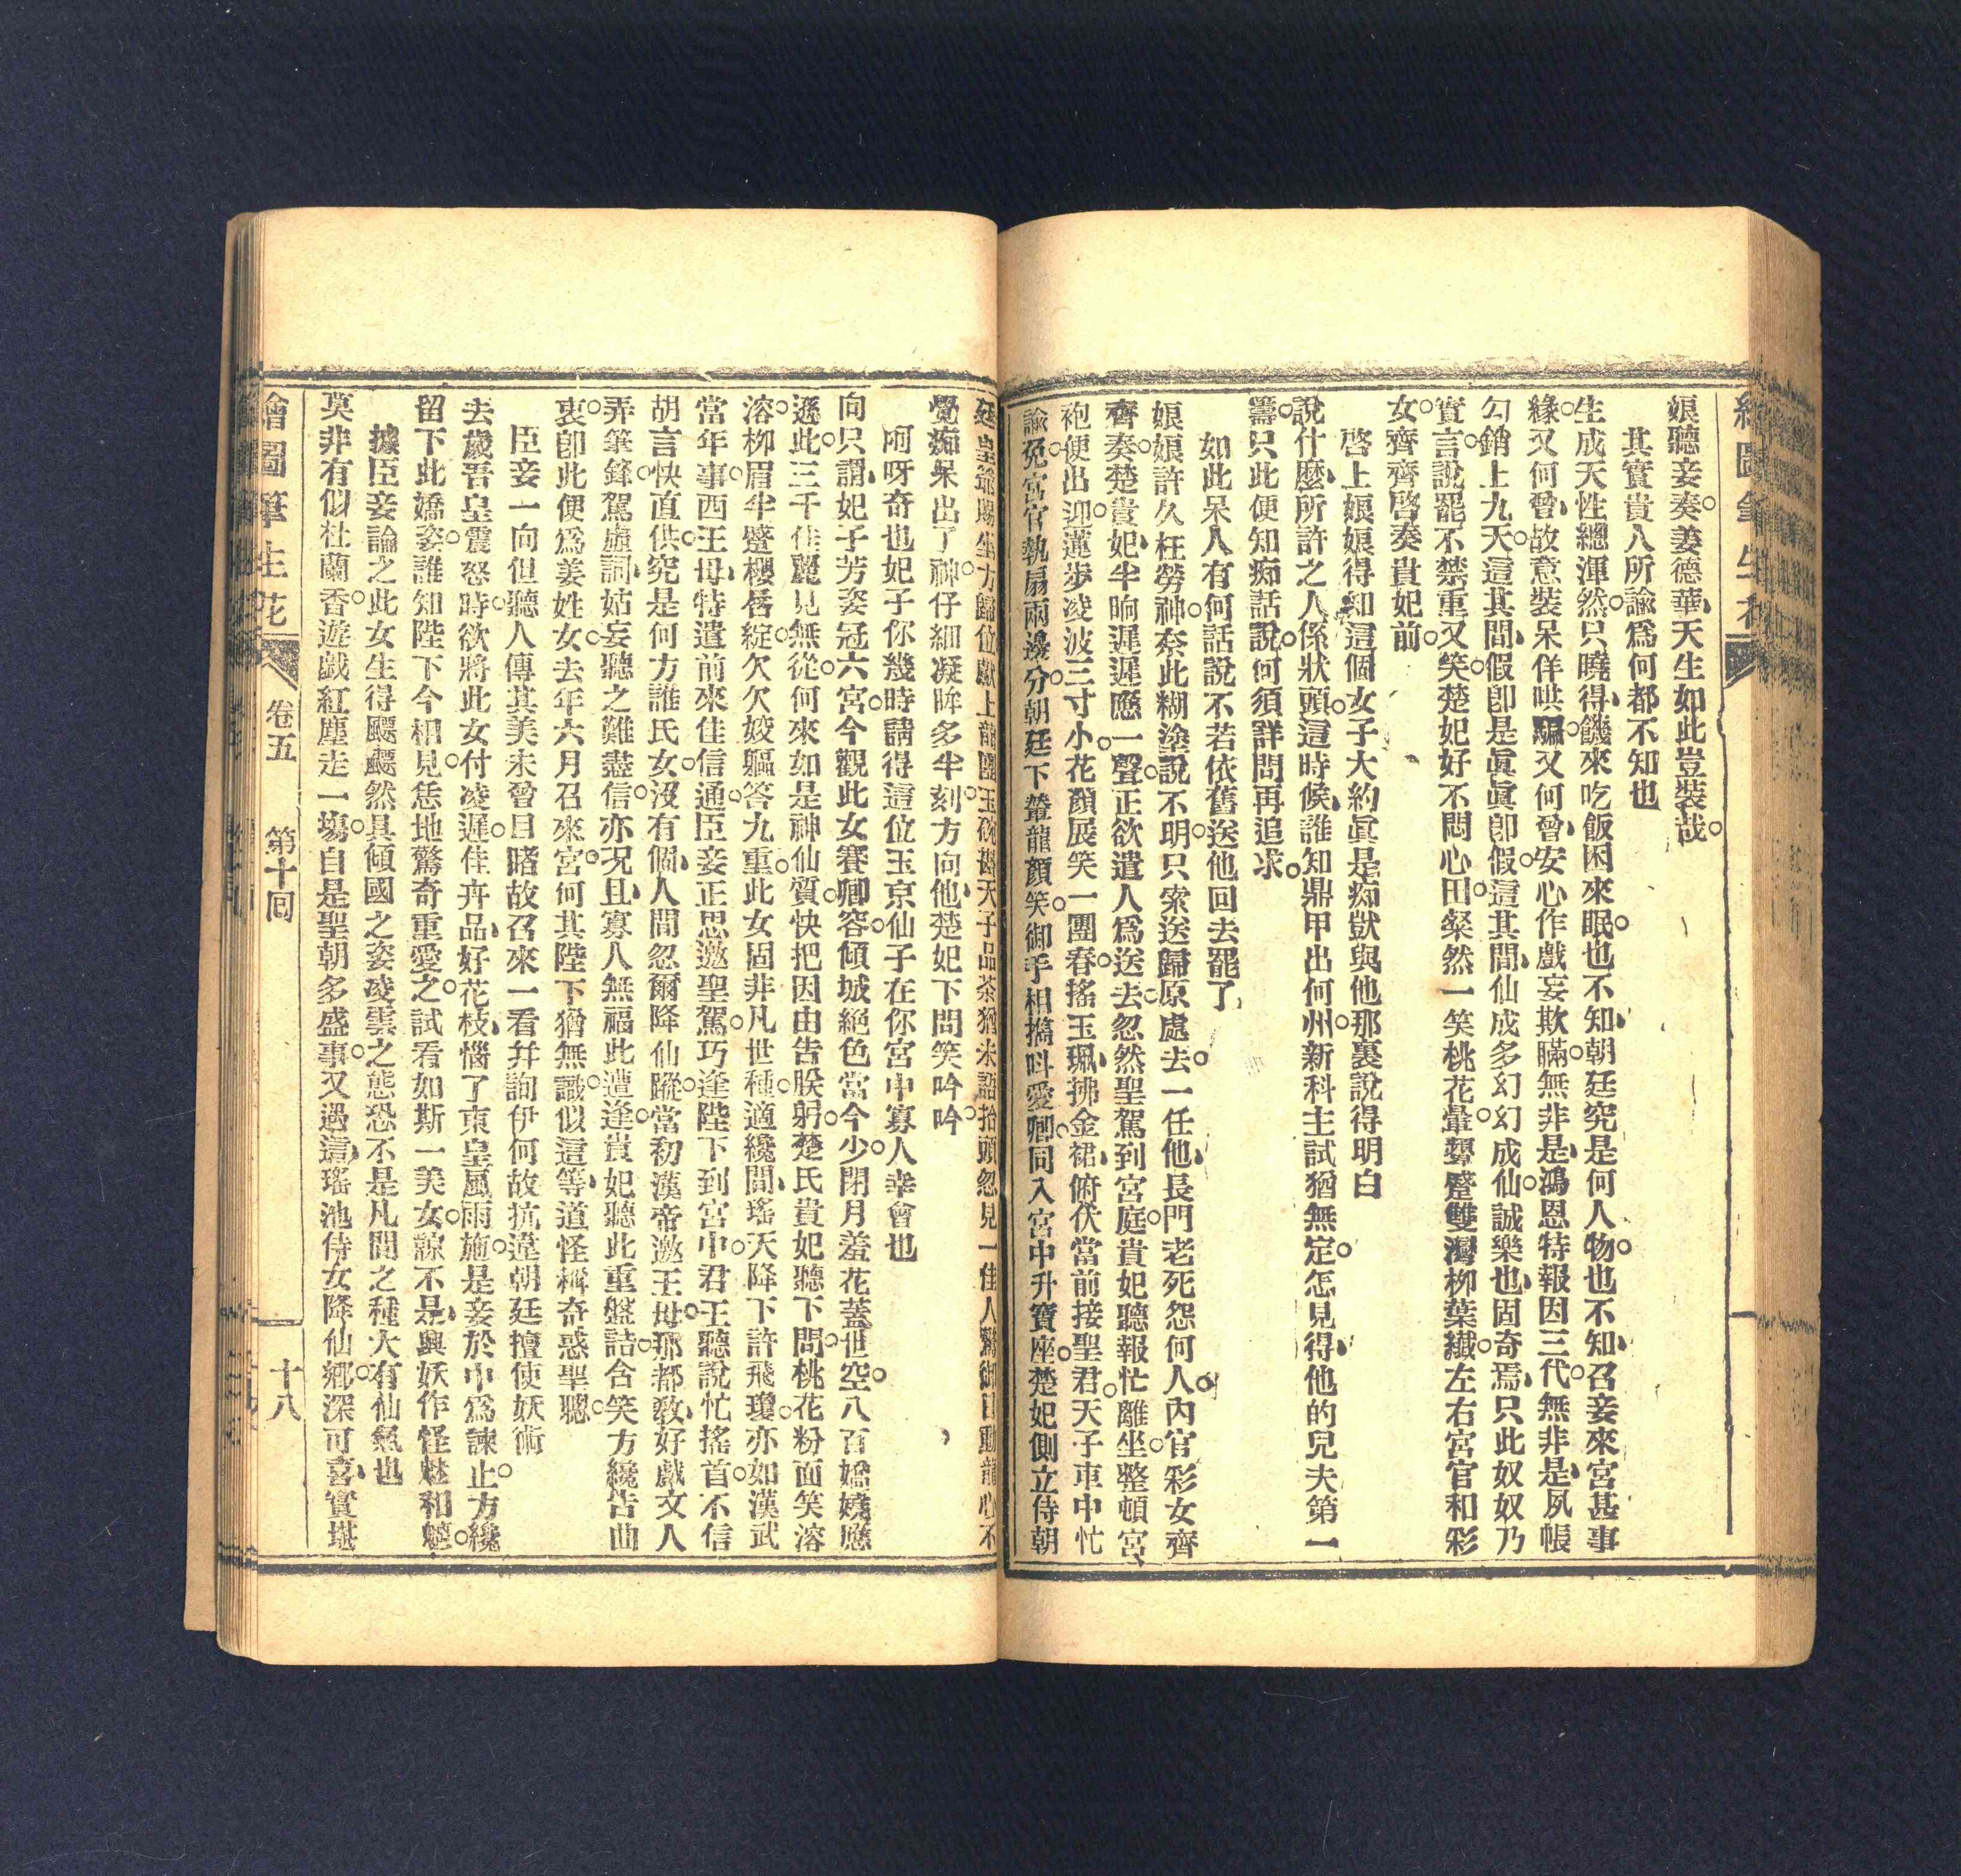 娘聽妾奏姜德華天生如此豈裝哉
其實貴人所諭爲何都不知也
生成天性總渾然只曉得饑來吃飯困來眠也不知朝廷究是何人物也不知召妾來宮甚事
緣又何曾故意裝呆佯哄騙又何曾安心作戲妄欺瞞無非是鴻恩特報因三代無非是夙帳
勾銷上九天這其間假卽是眞眞卽假這其間仙成多幻幻成仙誠樂也固奇焉只此奴奴乃
實言說罷不禁重又笑楚妃好不悶心田粲然一笑桃花暈顰蹙雙灣柳葉纖左右宮官和彩
女齊齊啓奏貴妃前
啓上娘娘得知這個女子大約眞是痴獃與他那裏說得明白
說什麼所許之人係狀頭這時候誰知鼎甲出何州新科主試猶無定怎見得他的兒夫第一
籌只此便知痴話說何須詳問再追求
如此呆人有何話說不若依舊送他回去罷了
娘娘許久枉勞神奈此糊塗說不明只索送歸原處去一任他長門老死怨何人內官彩女齊
齊奏楚貴妃半晌遲遲應一聲正欲遣人爲送去忽然聖駕到宮庭貴妃聽報忙離坐整頓宮
袍便出迎蓮步凌波三寸小花顏展笑一團春搖玉珮拂金裙俯伏當前接聖君天子車中忙
諭免宮官執扇兩邊分朝廷下輦龍顏笑御手相攜呌愛卿同入宮中升寶座楚妃側立侍朝
廷皇爺賜坐方歸位獻上龍團玉碗擎天子品茶猶未語抬頭忽見一佳人驚御目動龍心不
覺痴呆出了神仔細凝眸多半刻方向他楚妃下問笑吟吟
呵呀奇也妃子你幾時請得這位玉京仙子在你宮中寡人幸會也
向只謂妃子芳姿冠六宮今觀此女賽卿容傾城絕色當今少閉月羞花蓋世空八百嬌嬈應
遜此三千佳麗見無從何來如是神仙質快把因由告朕躬楚氏貴妃聽下問桃花粉面笑溶
溶柳眉半蹙櫻唇綻欠欠姣軀答九重此女固非凡世種適纔間瑤天降下許飛瓊亦如漢武
當年事西王母特遣前來佳信通臣妾正思邀聖駕巧逢陛下到宮中君王聽說忙搖首不信
胡言快直供究是何方誰氏女沒有個人間忽爾降仙蹤當初漢帝邀王母那都教好戲文人
弄筆鋒駕虛詞姑妄聽之難盡信亦况且寡人無福此遭逢貴妃聽此重盤詰含笑方纔告曲
衷卽此便爲姜姓女去年六月召來宮何其陛下猶無識似這等道怪稱奇惑聖聰
臣妾一向但聽人傳其美未曾目睹故召來一看幷詢伊何故抗違朝廷擅使妖術
去歲吾皇震怒時欲將此女付凌遲佳卉品好花枝惱了東皇風雨施是妾於中爲諫止方纔
留下此嬌姿誰知陛下今相見恁地驚奇重愛之試看如斯一美女諒不是興妖作怪魅和魑
據臣妾論之此女生得飄飄然具傾國之姿凌雲之態恐不是凡間之種大有仙氣也
莫非有似杜蘭香遊戲紅塵走一塲自是聖朝多盛事又遇這瑤池侍女降仙鄉深可喜實堪
繪圖筆生花
卷五
第十回
十八